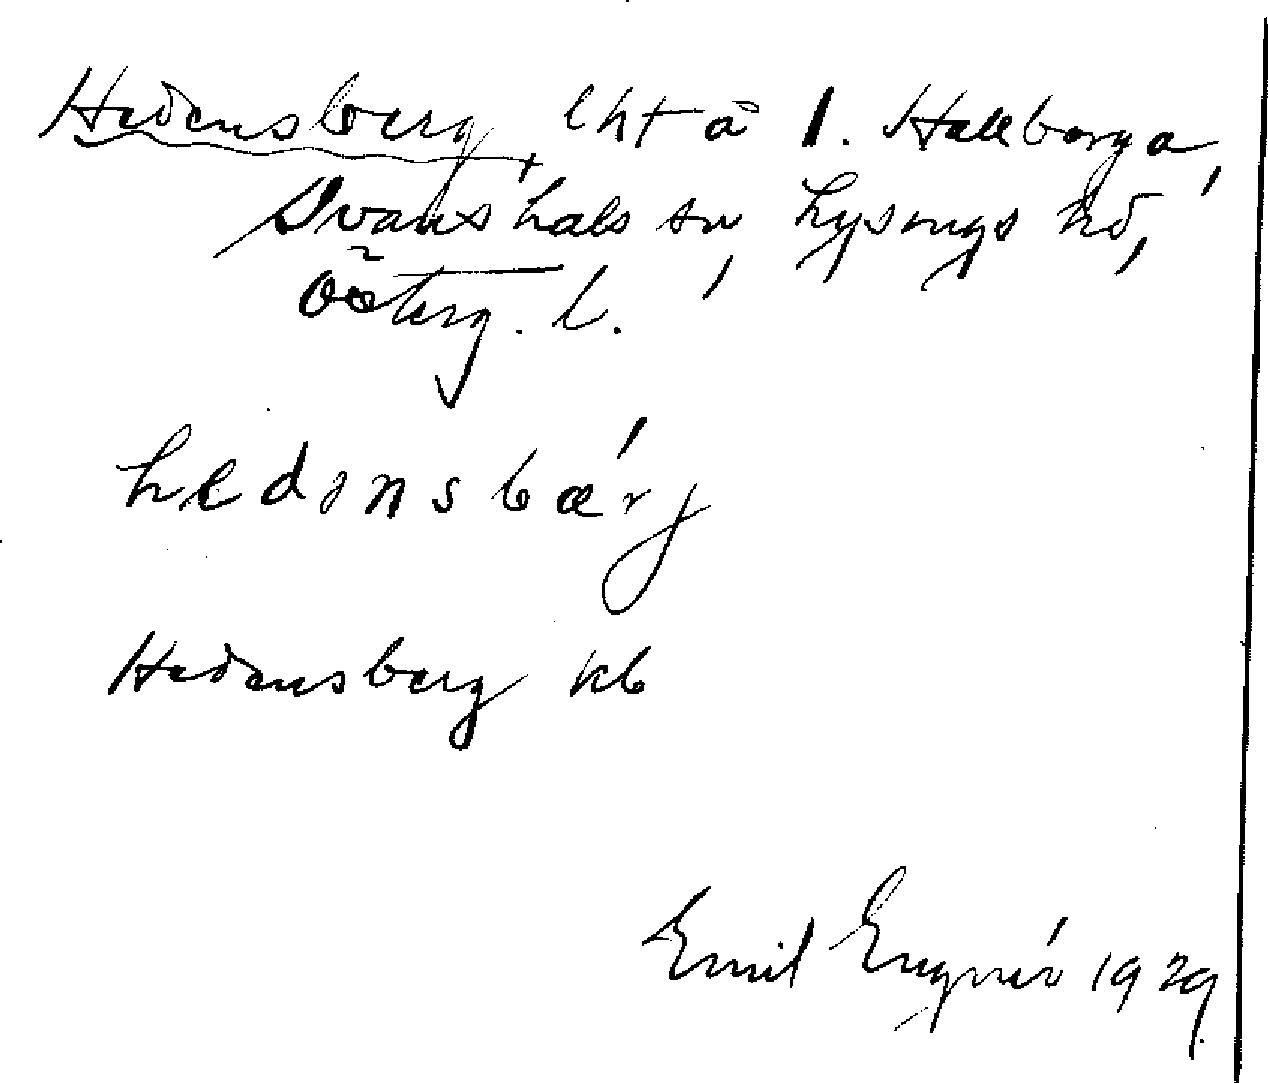 Hedensberg, lht å 1. Hallberga,
Svanshals sn, Lysings hd,
Österg. l.
hedənsbærj
Hedensberg kb
Emil Engnér 1929